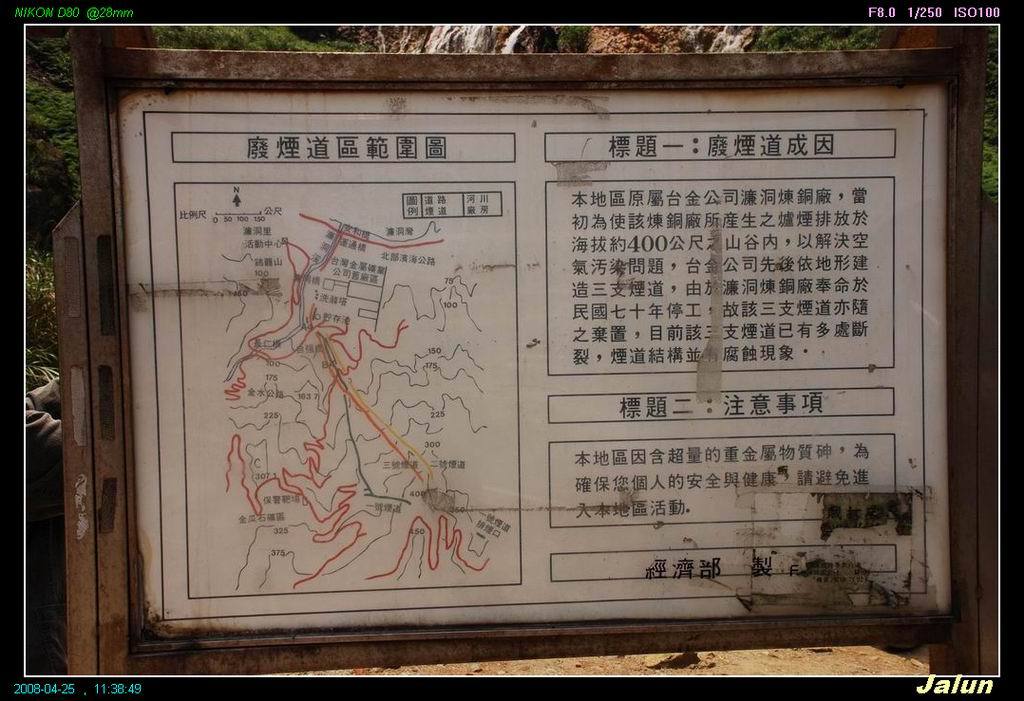 NIKON D80 @28mm
F8.0 1/250 ISO100
廢煙道區範圍圖
N
比例尺 0 50 100 150 公尺
圖例 道路 河川
煙道 廠房
濂洞里
活動中心
濂洞灣
北部濱海公路
台灣金屬礦業
公司舊廠區
100
150
75
100
洗滌塔
貯存池
長仁橋
100
175
150
175
金水公路
163.7
225
225
300
三號煙道
二號煙道
C
307.1
400
保警靶場
一號煙道
350
一號煙道
排煙口
金瓜石礦區
325
450
375
標題一：廢煙道成因
本地區原屬台金公司濂洞煉銅廠，當
初為使該煉銅廠所產生之爐煙排放於
海拔約400公尺之山谷內，以解決空
氣污染問題，台金公司先後依地形建
造三支煙道，由於濂洞煉銅廠奉命於
民國七十年停工，故該三支煙道亦隨
之棄置，目前該三支煙道已有多處斷
裂，煙道結構並有腐蝕現象．
標題二：注意事項
本地區因含超量的重金屬物質砷，為
確保您個人的安全與健康，請避免進
入本地區活動．
經濟部 製
2008-04-25 , 11:38:49
Jalun